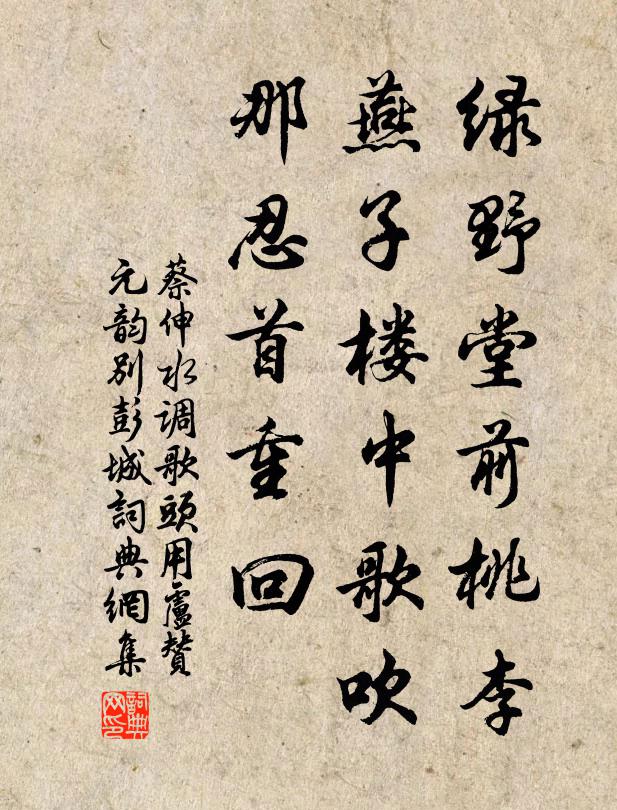 绿野堂前桃李
燕子楼中歌吹
那忍首重回
蔡伸水调歌頭用盧賛
元韵别彭城詞典網集
詞典网印